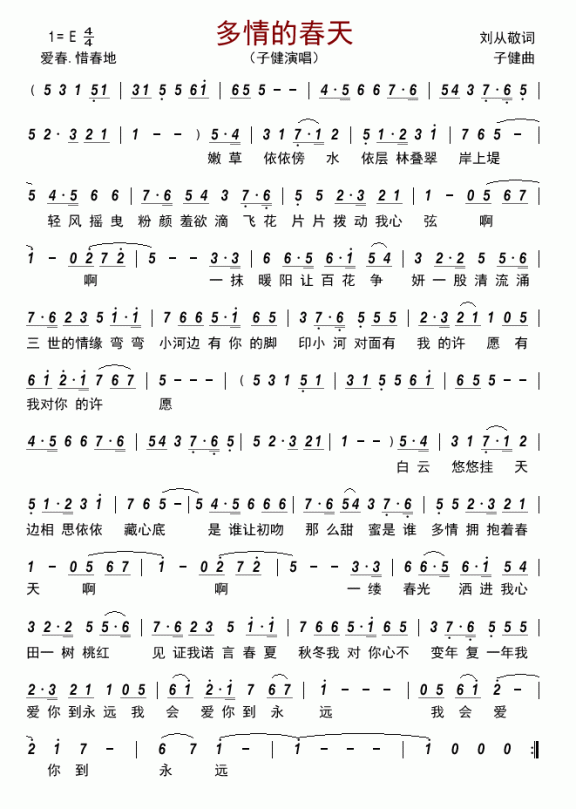 多情的春天
1= E 4/4
刘从敬词
爱春.惜春地
（子健演唱）
子健曲
( 5 3 1 51 | 31 5 5 61 | 65 5 - - | 4·5 6 6 7·6 | 54 3 7·6 5 |
5 2· 3 21 | 1 - - ) 5·4 | 3 1 7·1 2 | 5 1·2 3 1 | 7 6 5 - |
嫩 草 依依傍 水 依层 林叠翠 岸上堤
5 4·5 6 6 | 7·6 54 3 7·6 | 5 5 2·3 21 | 1 - 05 67 |
轻 风 摇 曳 粉 颜 羞欲 滴 飞 花 片 片 拨 动 我心 弦 啊
1 - 02 72 | 5 - - 3·3 | 6 6·5 6·1 54 | 3 2·2 5 5·6 |
啊 一 抹 暖 阳让 百 花 争 妍 一 股 清 流 涌
7·6 235 1·1 | 7665 5·1 65 | 3 7·6 555 | 2·3 21 105 |
三 世的情缘 弯 弯 小河边 有 你 的脚 印小 河 对面有 我 的许 愿 有
61 2·1 767 | 5 - - - | ( 5 3 1 51 | 31 5 5 61 | 65 5 - - |
我对你 的许 愿
4·5 6 6 7·6 | 54 3 7·6 5 | 52·3 21 | 1 - - ) 5·4 | 31 7·1 2 |
白 云 悠悠挂 天
5 1·2 3 1 | 7 6 5 - | 54·5 666 | 7·6 54 3 7·6 | 55 2·3 21 |
边相 思依依 藏心底 是 谁让初吻 那 么甜 蜜是 谁 多情 拥 抱着春
1 - 05 67 | 1 - 02 72 | 5 - - 3·3 | 66·5 6·1 54 |
天 啊 啊 一 缕 春光 洒 进 我心
3 2·2 5 5·6 | 7·6 23 5 1·1 | 766 5·1 65 | 3 7·6 5 55 |
田一 树 桃红 见 证我诺 言 春 夏 秋冬我 对 你心不 变年 复 一年我
2·3 21 105 | 61 2·1 7 67 | 1 - - - | 05 61 2 - |
爱你 到永 远 我 会 爱你 到 永 远 我 会 爱
2 1 7 - | 6 7 1 - | 1 - - - | 1 0 0 0 :||
你 到 永 远